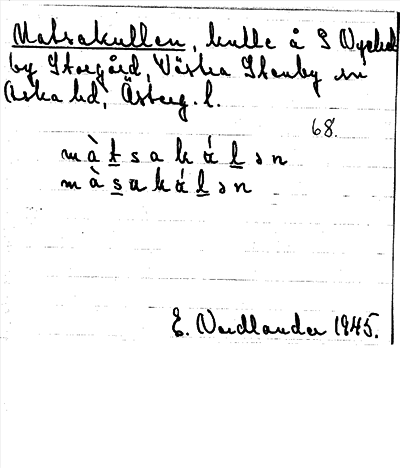 Matsakullen, kulle å S Nyckel
by Storgård, Västra Stenby sn
Aska hd, Österg. l.
68.
màtsakálən
màsakálən
E. Nordlander 1945.